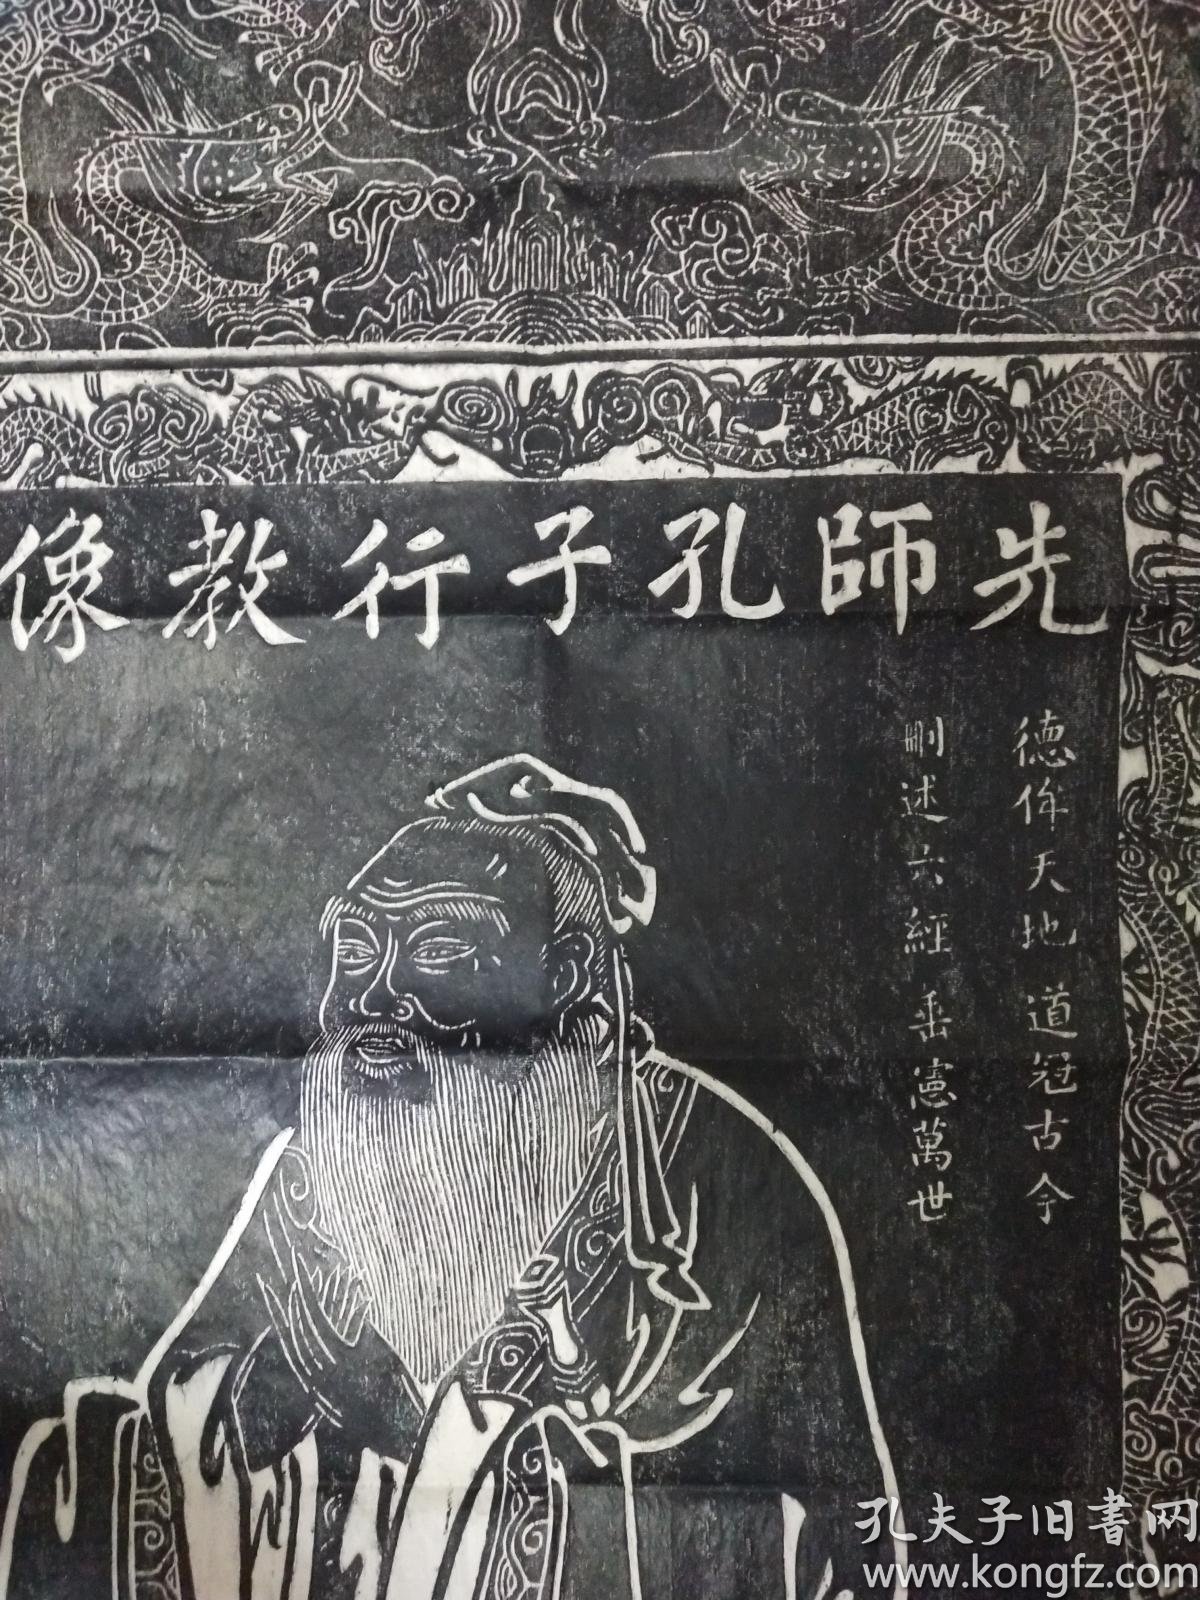 先師孔子行教像
德侔天地道冠古今
刪述六經垂憲萬世
孔夫子旧書网
www.kongfz.com